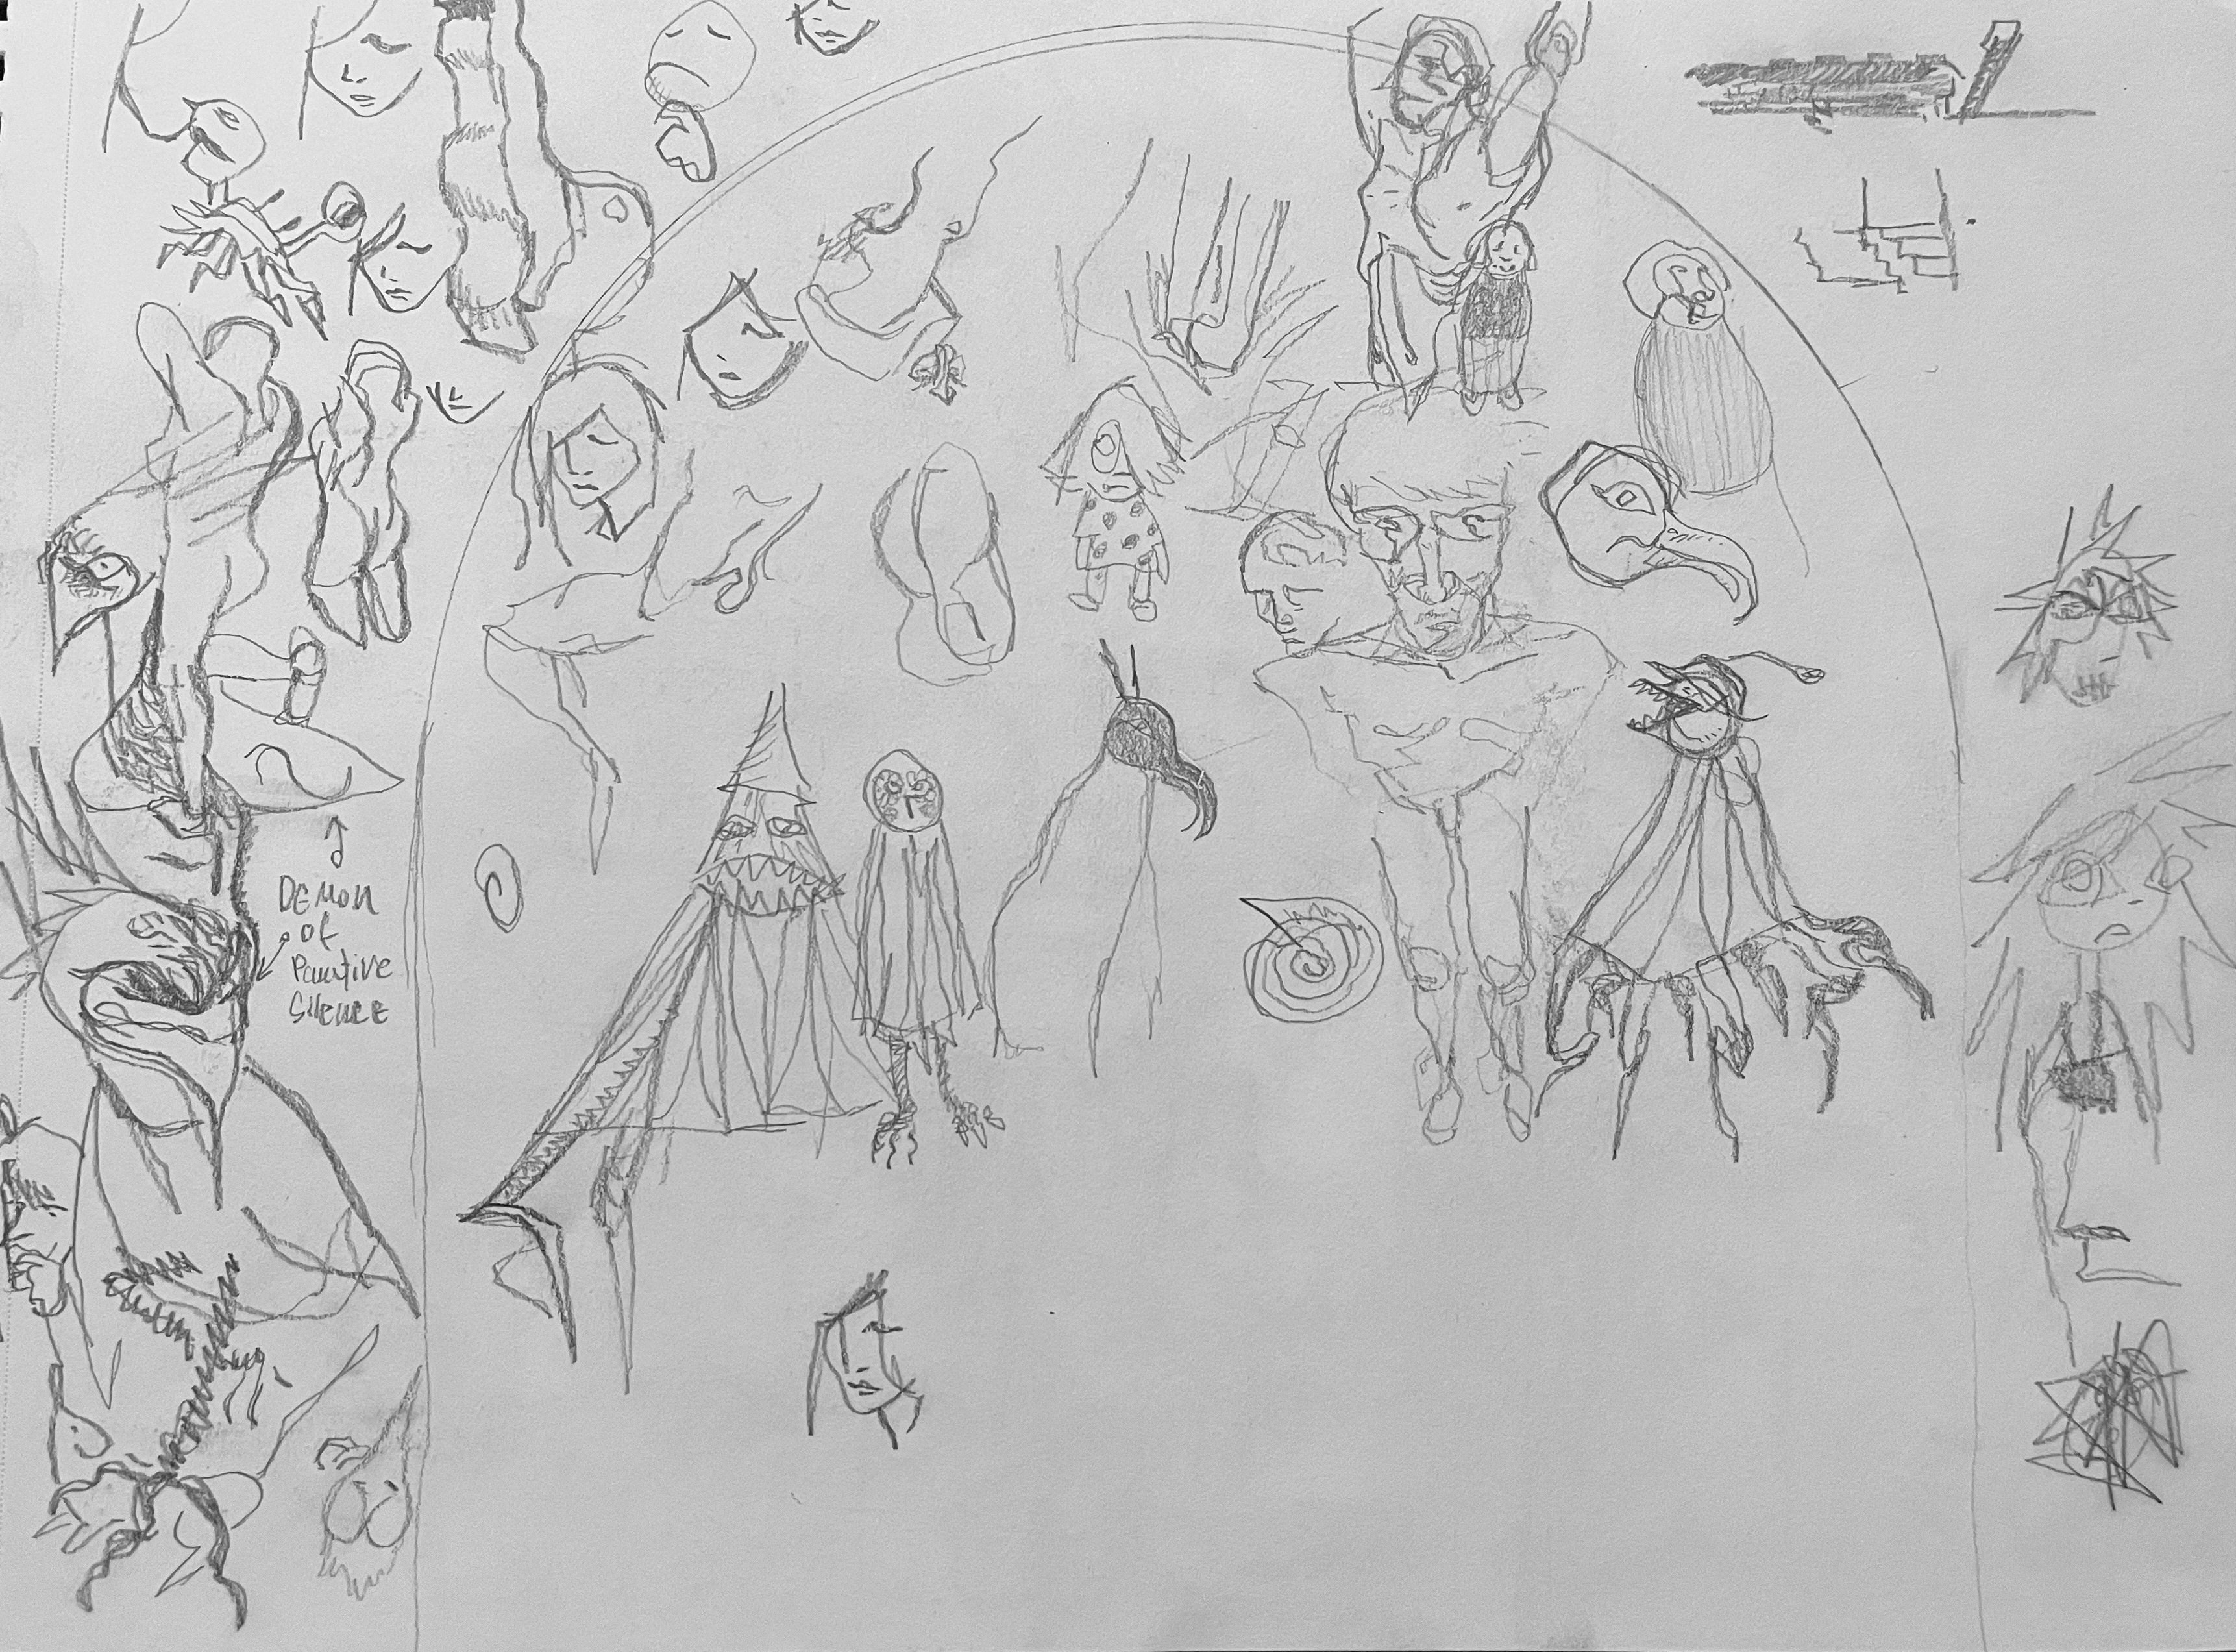 DEMON
OF
Punitive
Silence